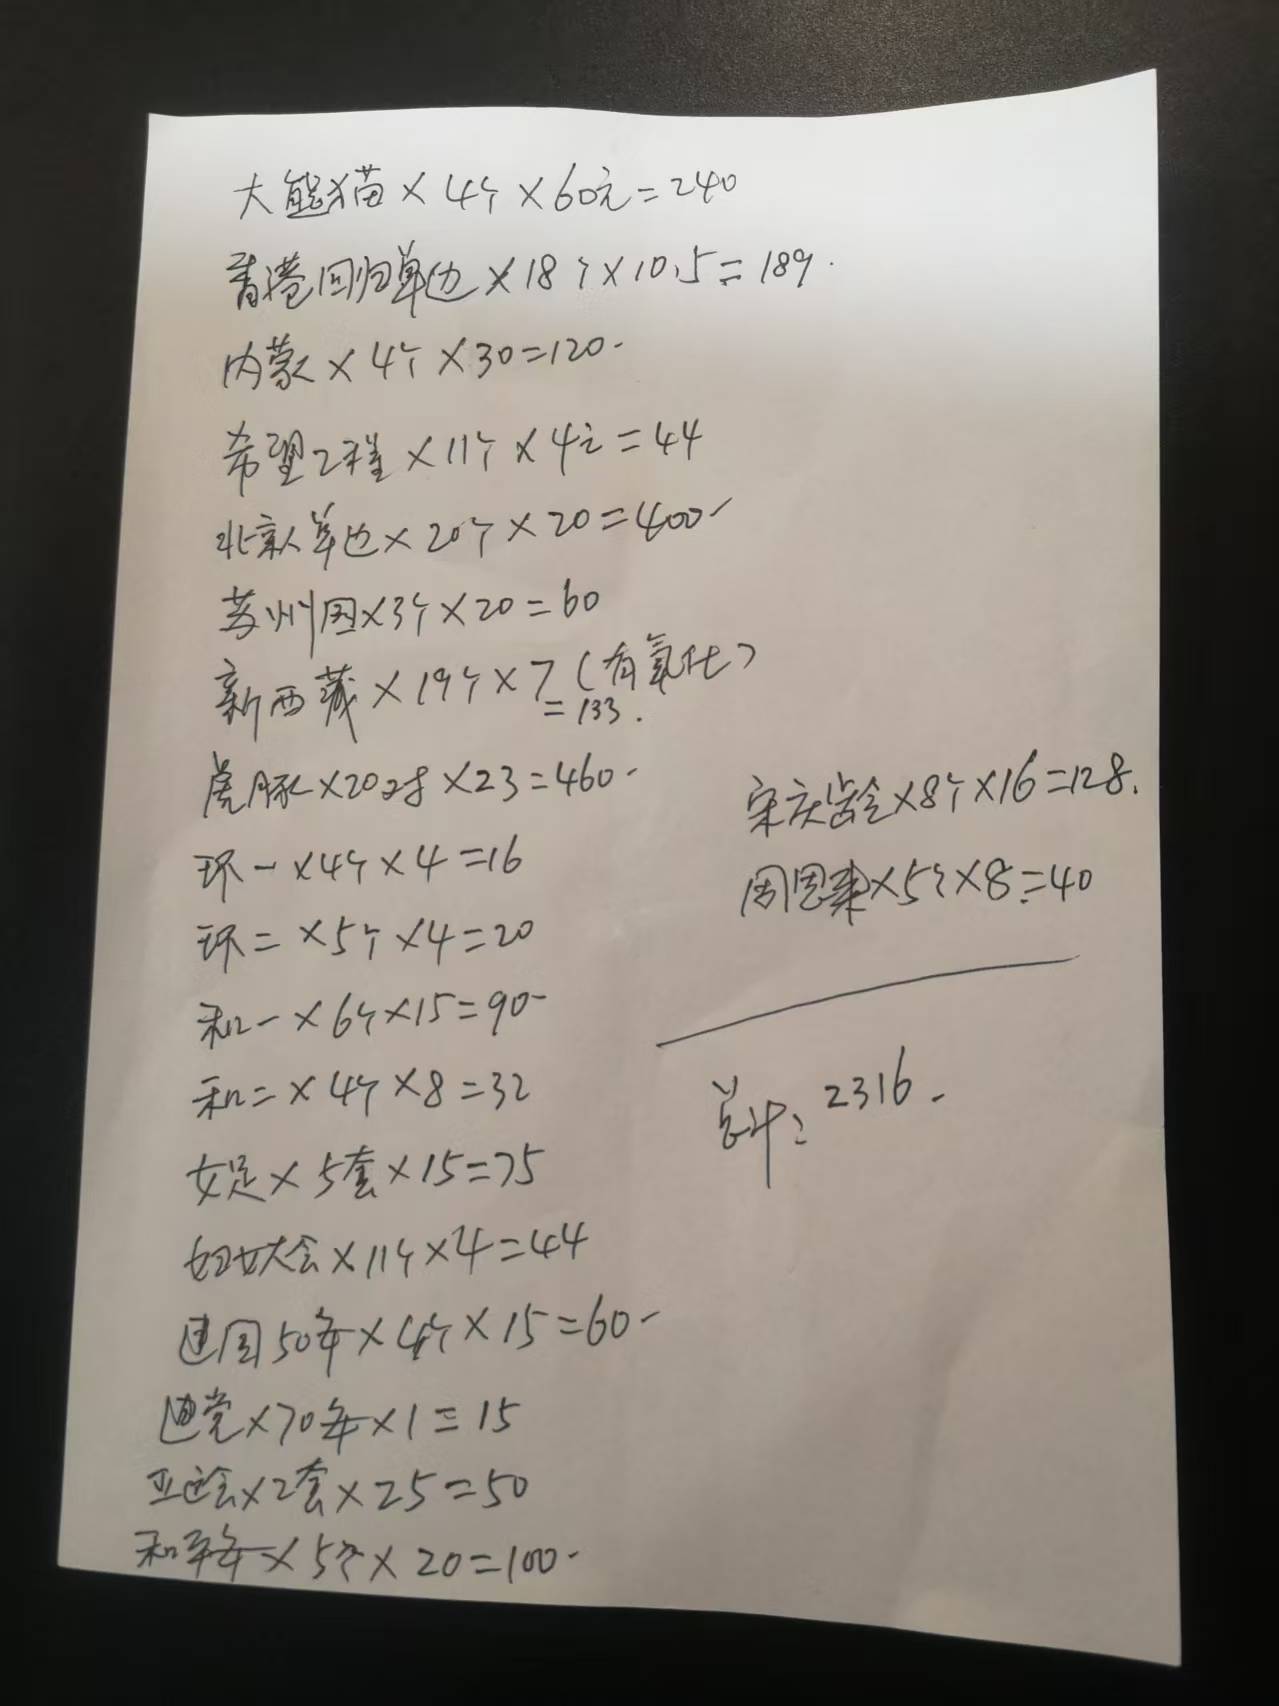 大熊猫×4个×60元=240
香港回归单边×18个×10.5=189.
内蒙×4个×30=120-
希望工程×11个×4元=44
北京人单边×20个×20=400-
苏州园×3个×20=60
新西藏×19个×7(有氧化)
=133.
虎豚×20对×23=460-
环一×4个×4=16
环二×5个×4=20
和一×6个×15=90-
和二×4个×8=32
女足×5套×15=75
妇女大会×11个×4=44
建国50年×4个×15=60-
建党×70年×1=15
亚运会×2套×25=50
和平年×5个×20=100-
宋庆龄×8个×16=128.
周恩来×5个×8=40
总计:2316-